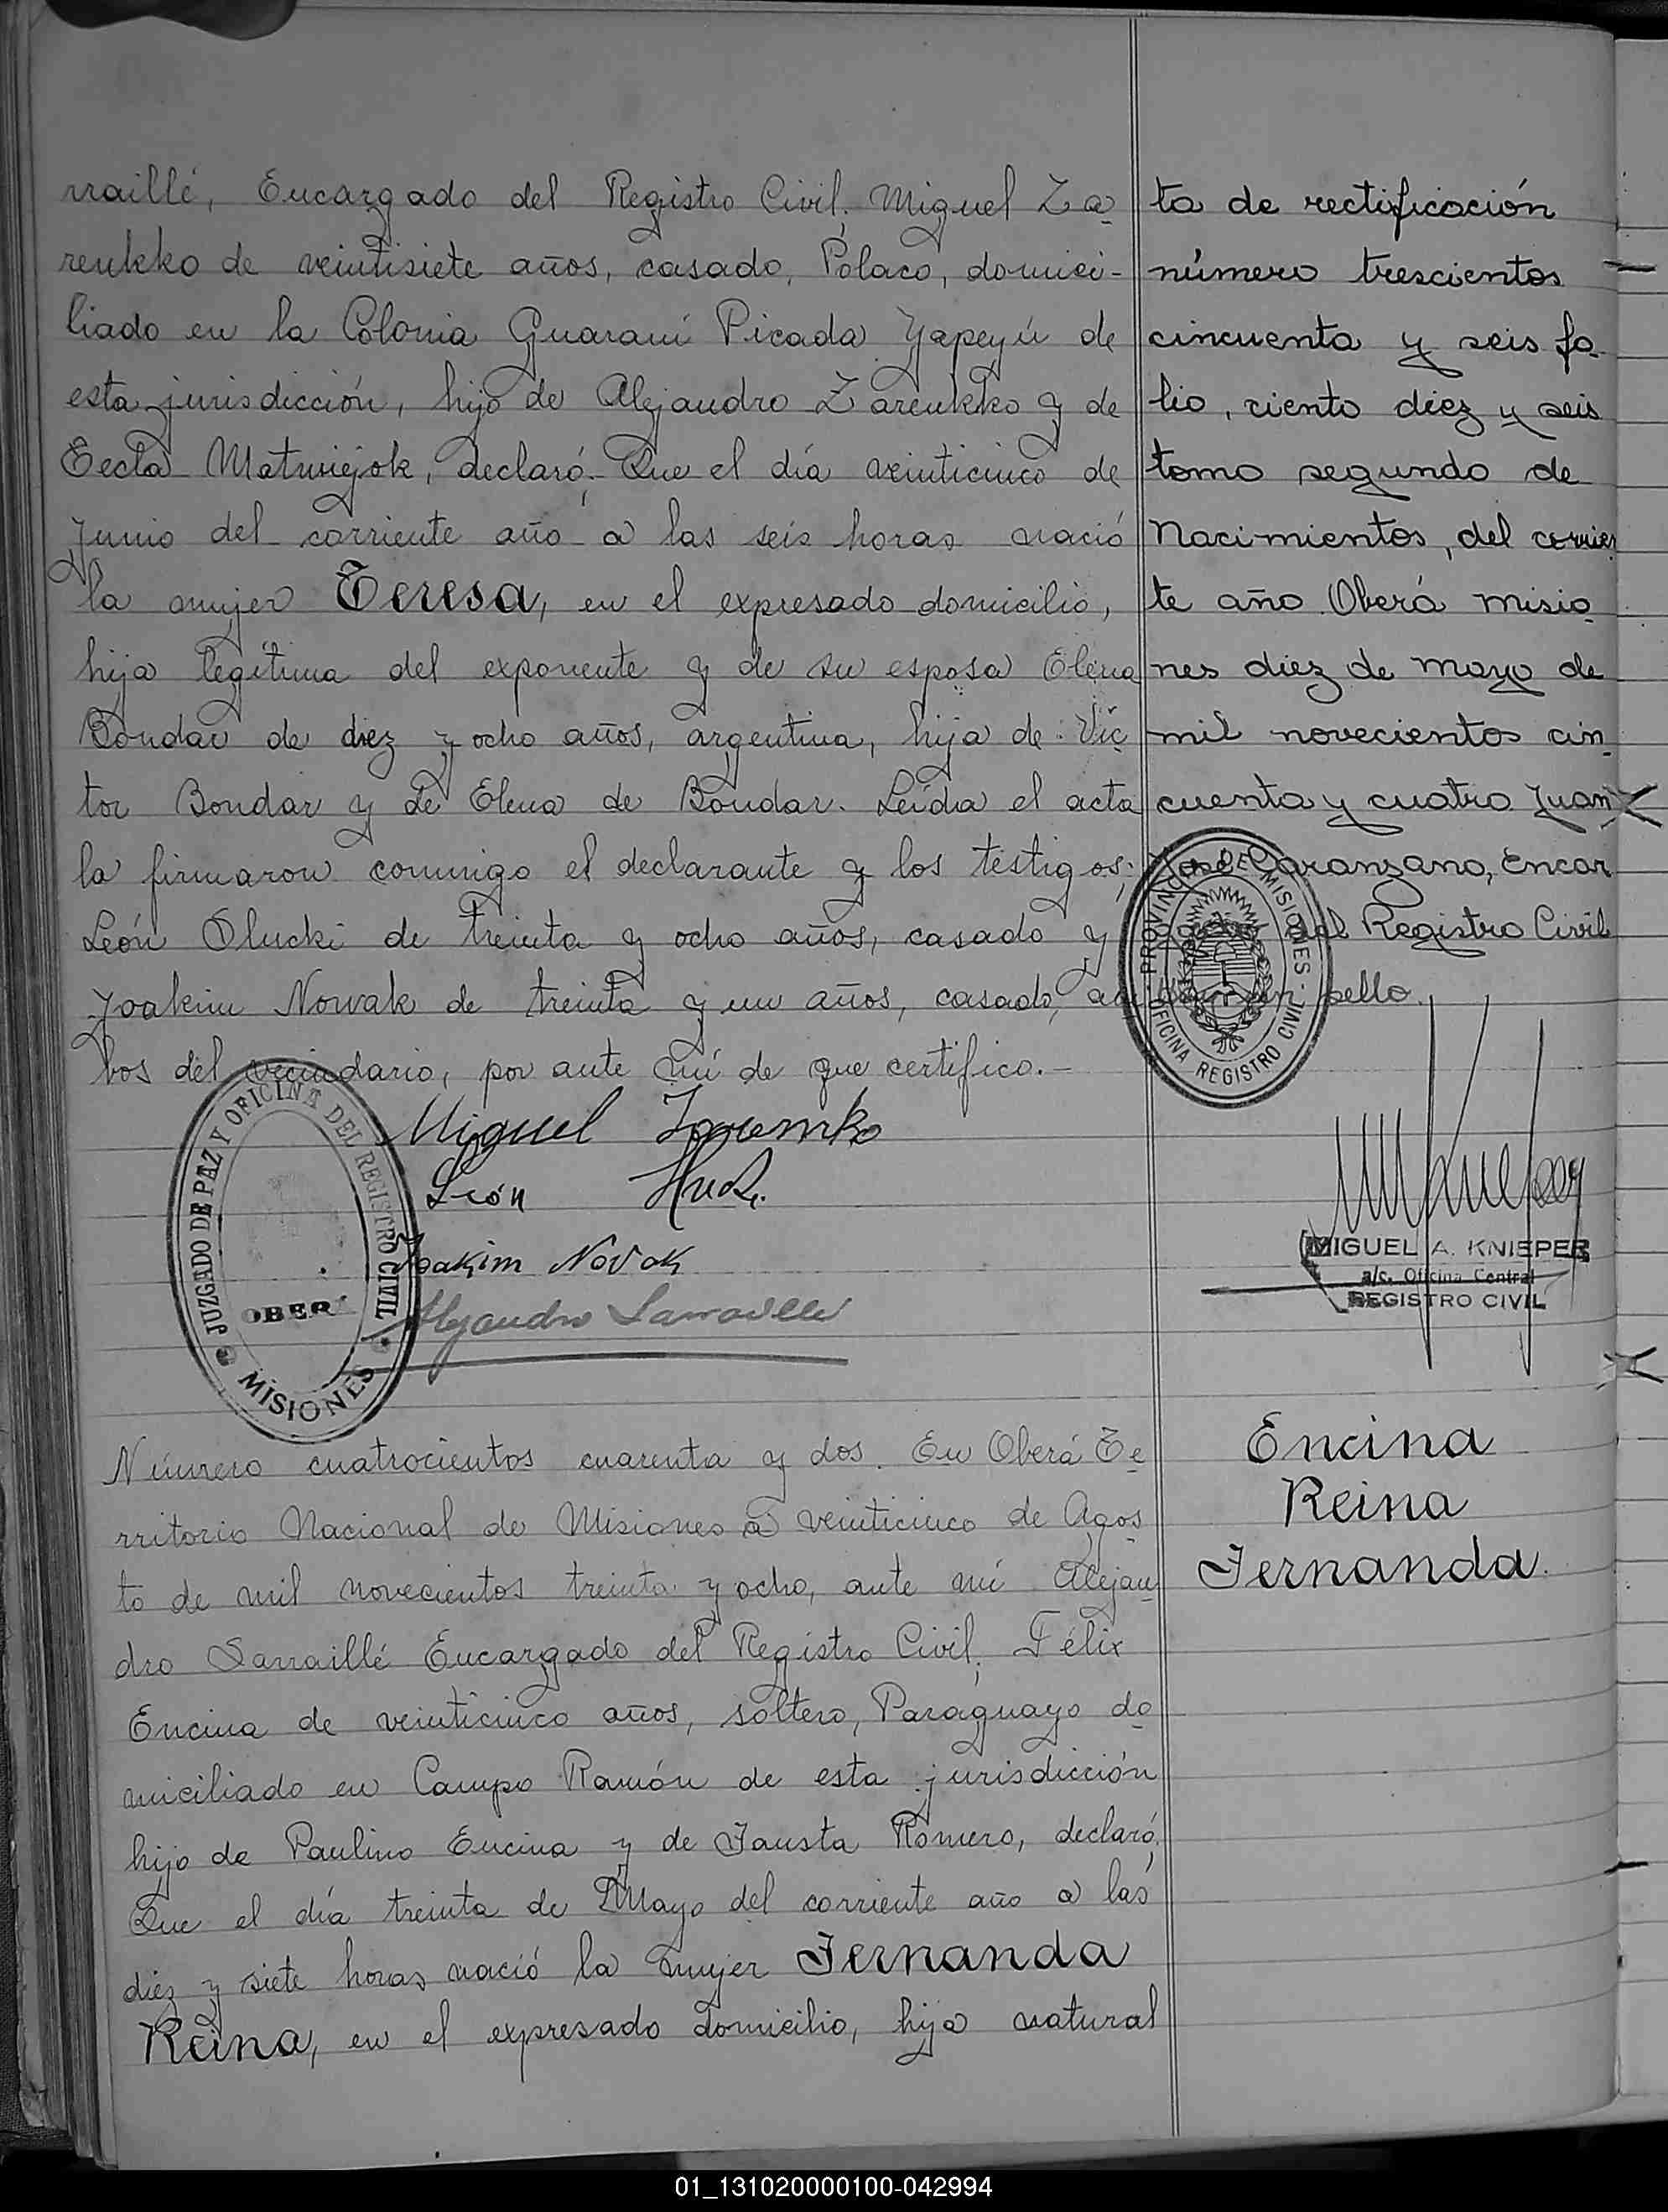 rraillé, Encargado del Registro Civil. Miguel Za
renkko de veintisiete años, casado, Polaco, domici-
liado en la Colonia Guaraní Picada Yapeyú de
esta jurisdicción, hijo de Alejandro Zarenkko y de
Tecla Matusiejok, declaró:- Que el día veinticinco de
Junio del corriente año a las seis horas nació
la mujer Teresa, en el expresado domicilio,
hija legítima del exponente y de su esposa Elena
Bondar de diez y ocho años, argentina, hija de Víc
tor Bondar y de Elena de Bondar. Leída el acta
la firmaron conmigo el declarante y los testigos:
León Slucki de treinta y ocho años, casado y
Joakim Nowak de treinta y un años, casado, am
bos del vecindario, por ante mí de que certifico.-
Miguel Zaremko
León
Joakim Novak
Alejandro Sarraillé
JUZGADO DE PAZ Y OFICINA DEL REGISTRO CIVIL
OBERÁ
MISIONES
ta de rectificación
número trescientos
cincuenta y seis fo
lio, ciento diez y seis
tomo segundo de
Nacimientos, del corrien
te año. Oberá Misio
nes diez de mayo de
mil novecientos cin
cuenta y cuatro Juan
José Caranzano, Encar
gado del Registro Civil
hay un sello.
PROVINCIA DE MISIONES
OFICINA REGISTRO CIVIL
MIGUEL A. KNIEPER
a/c. Oficina Central
REGISTRO CIVIL
Número cuatrocientos cuarenta y dos. En Oberá Te
rritorio Nacional de Misiones a veinticinco de Agos
to de mil novecientos treinta y ocho, ante mí Alejan
dro Sarraillé Encargado del Registro Civil; Félix
Encina de veinticinco años, soltero, Paraguayo do
miciliado en Campo Ramón de esta jurisdicción
hijo de Paulino Encina y de Fausta Romero, declaró:
Que el día treinta de Mayo del corriente año a las
diez y siete horas nació la mujer Fernanda
Reina, en el expresado domicilio, hija natural
Encina
Reina
Fernanda.
01_131020000100-042994